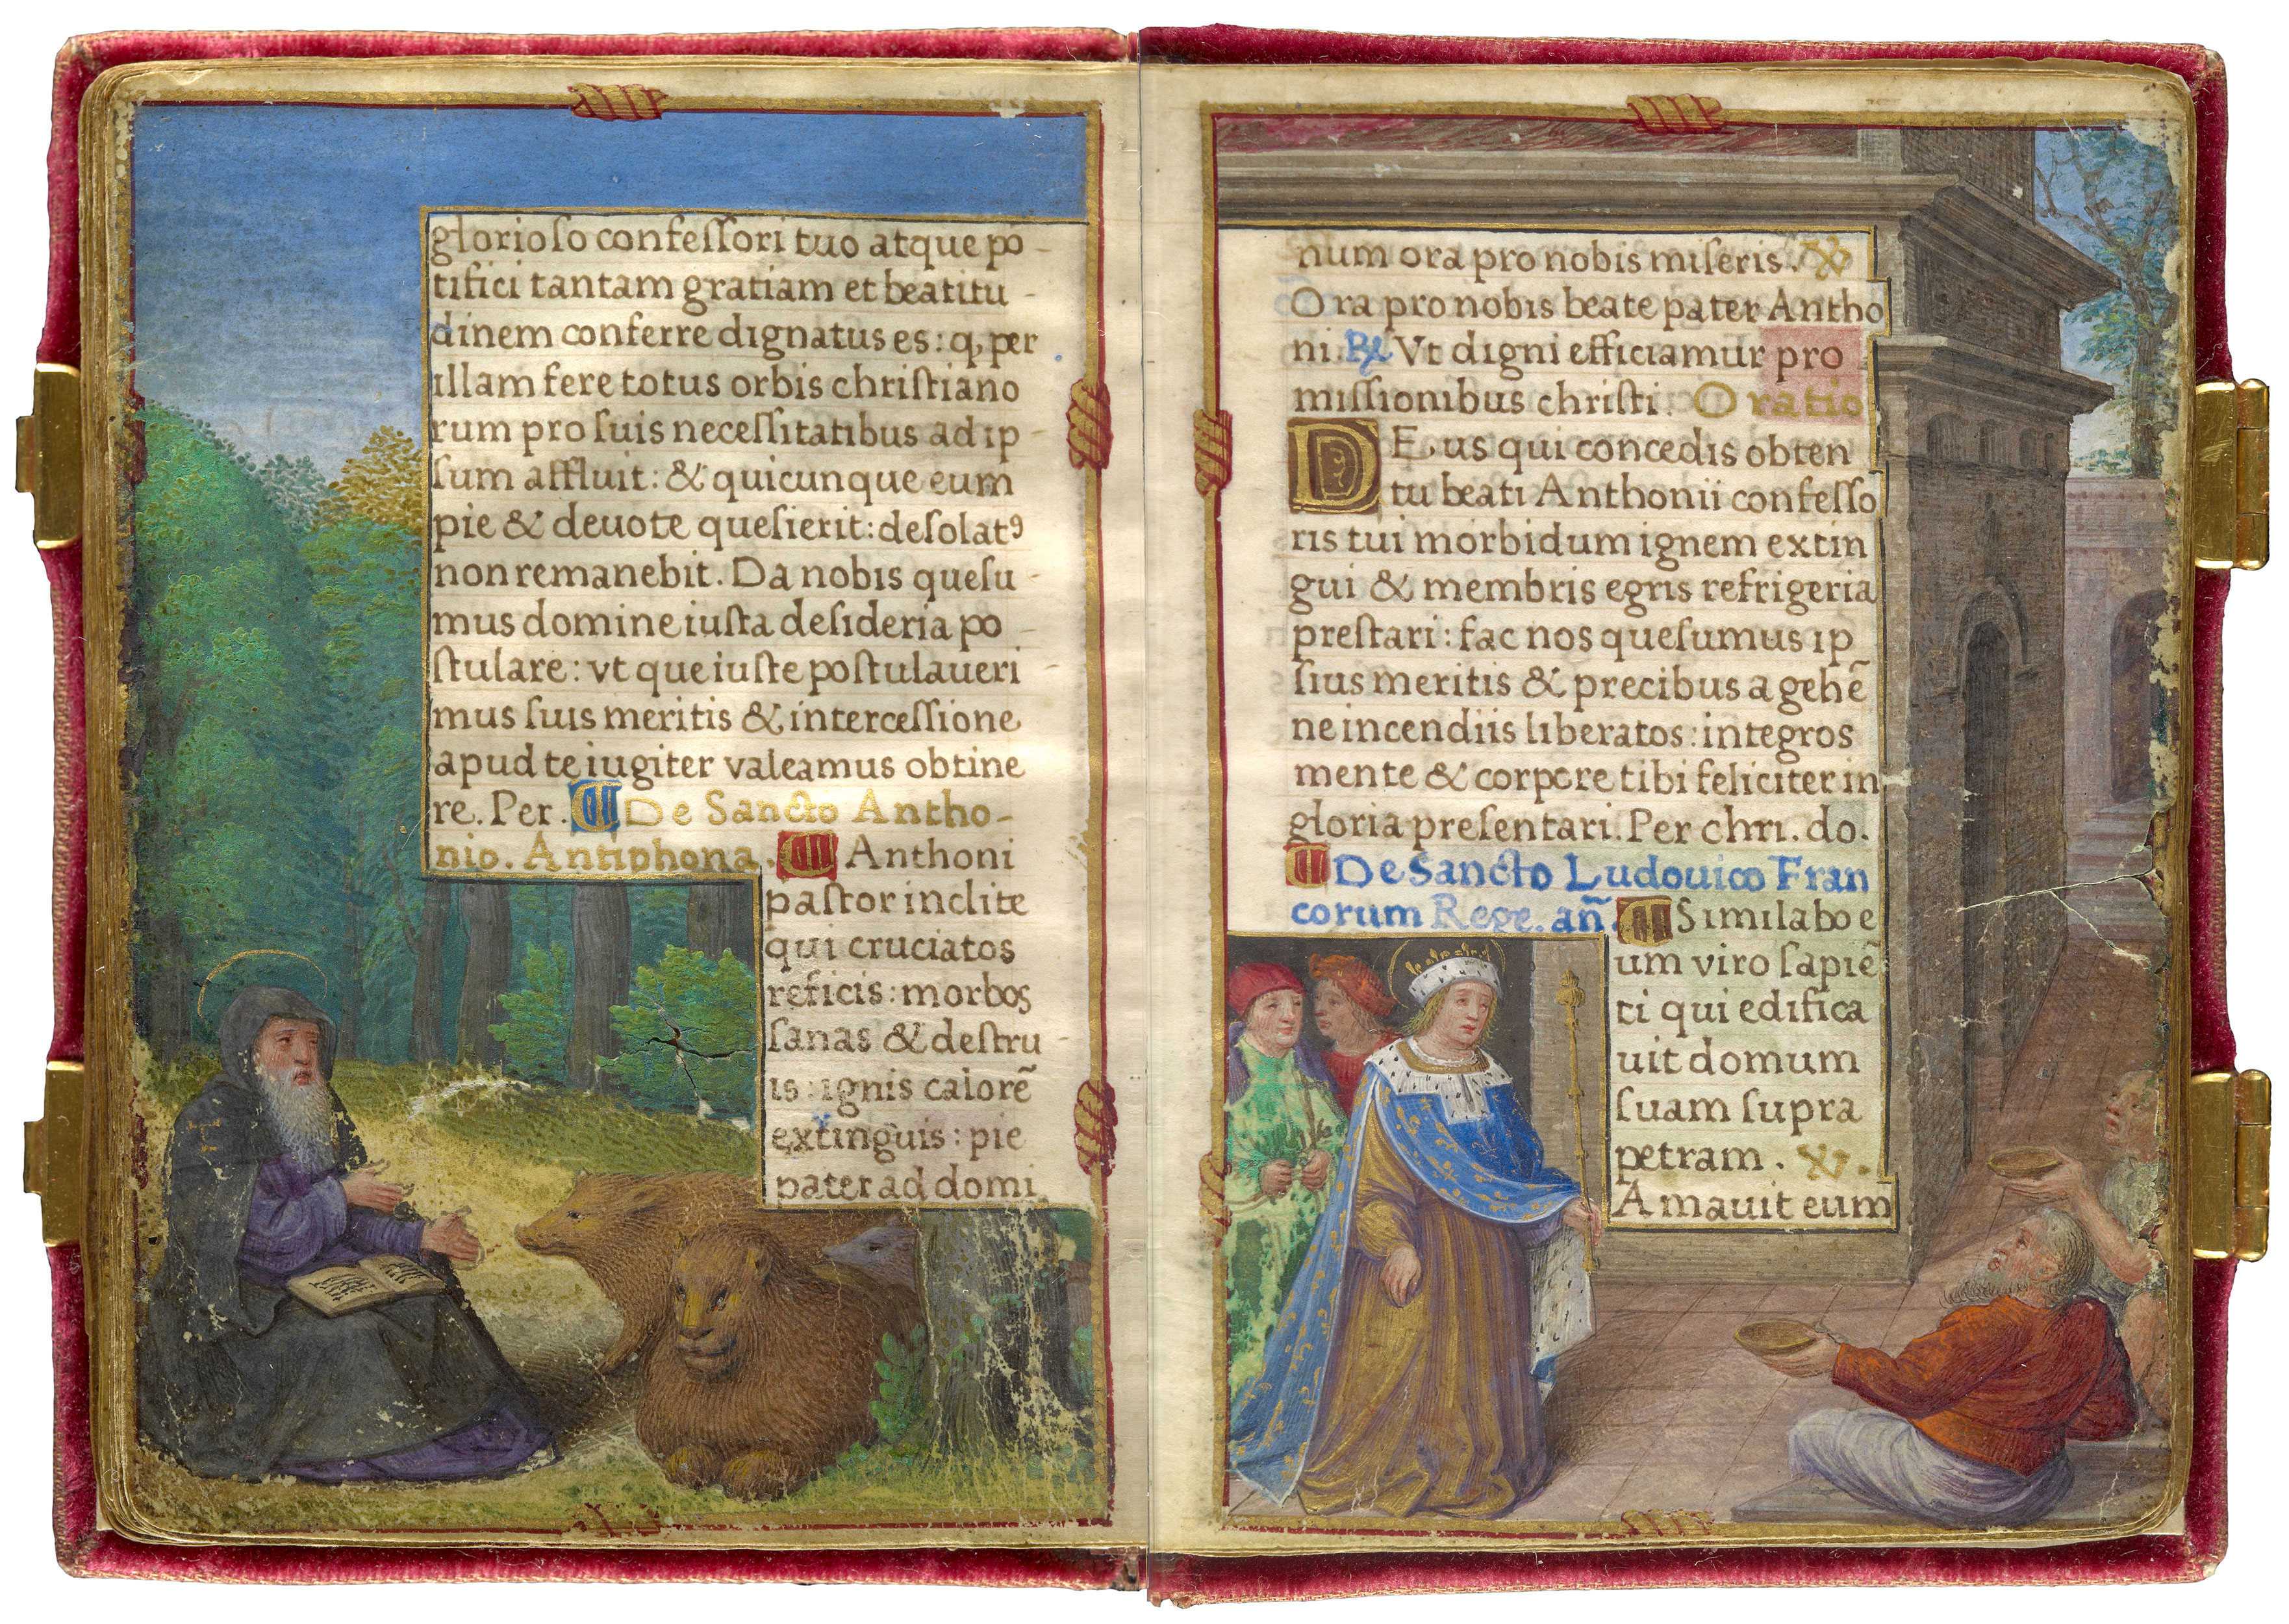 glorioſo confeſſori tuo atque po-
tifici tantam gratiam et beatitu-
dinem conferre dignatus es: q, per
illam fere totus orbis chriſtiano
rum pro ſuis neceſſitatibus ad ip-
ſum affluit: & quicunque eum
pie & deuote queſierit: deſolatꝰ
non remanebit. Da nobis queſu-
mus domine iuſta deſideria po-
ſtulare: vt que iuſte poſtulaueri-
mus ſuis meritis & interceſſione
apud te iugiter valeamus obtine
re. Per. ¶ De Sancto Antho-
nio. Antiphona. ¶ Anthoni
paſtor inclite
qui cruciatos
reficis: morbos
ſanas & deſtru-
is: ignis calorē
extinguis: pie
pater ad domi
num ora pro nobis miſeris. ℣
Ora pro nobis beate pater Antho
ni. ℟ Vt digni efficiamur pro
miſſionibus chriſti. Oratio
DEus qui concedis obten
tu beati Anthonii confeſſo
ris tui morbidum ignem extin
gui & membris egris refrigeria
preſtari: fac nos queſumus ip
ſius meritis & precibus a gehē
ne incendiis liberatos: integros
mente & corpore tibi feliciter in
gloria preſentari. Per chri. do.
¶ De Sancto Ludouico Fran
corum Rege. añ. ¶ Similabo e
um viro ſapiē
ti qui edifica
uit domum
ſuam ſupra
petram. ℣.
Amauit eum